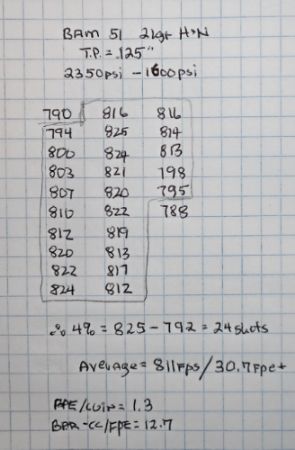 BAM 51 21gr H+N
T.P. = .125"
2350psi - 1600psi
790 816 816
794 825 814
800 824 813
803 821 798
807 820 795
810 822 788
812 819
820 813
822 817
824 812
∴ 4% = 825 - 792 = 24 shots
Average = 811fps/30.7fpe
/coin = 1.3
-cc/FPE = 12.7